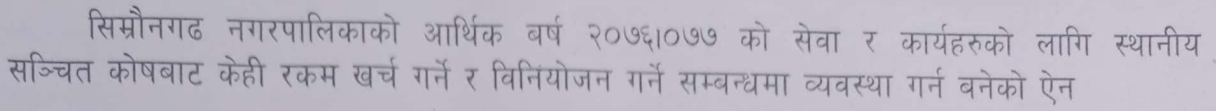 सिम्रौनगढ नगरपालिकाको आर्थिक वर्ष २०७६।०७७ को सेवा र कार्यहरुको लागि स्थानीय
सञ्चित कोषबाट केही रकम खर्च गर्ने र विनियोजन गर्ने सम्बन्धमा व्यवस्था गर्न बनेको ऐन